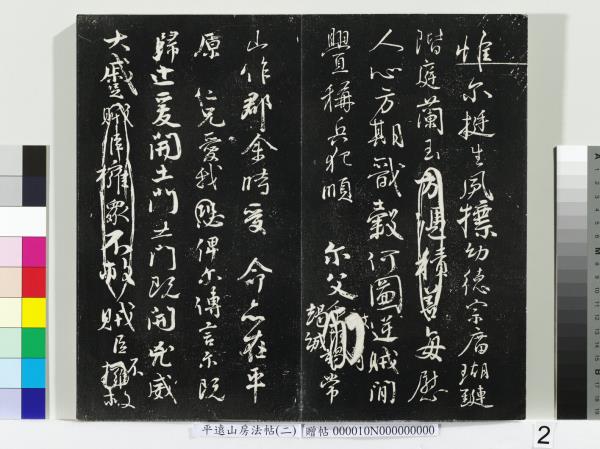 惟尔挺生夙摽幼德宗廟瑚璉
階庭蘭玉方憑積善每慰
人心方期戩穀何圖逆賊閒
釁稱兵犯順 尔父竭誠常
山作郡余時受 命亦在平
原仁兄愛我恐俾尔傳言尔既
歸止爰開土門土門既開凶威
大蹙賊臣擁眾不救賊臣擁不救
平遠山房法帖(二) 贈帖 000010N000000000
2